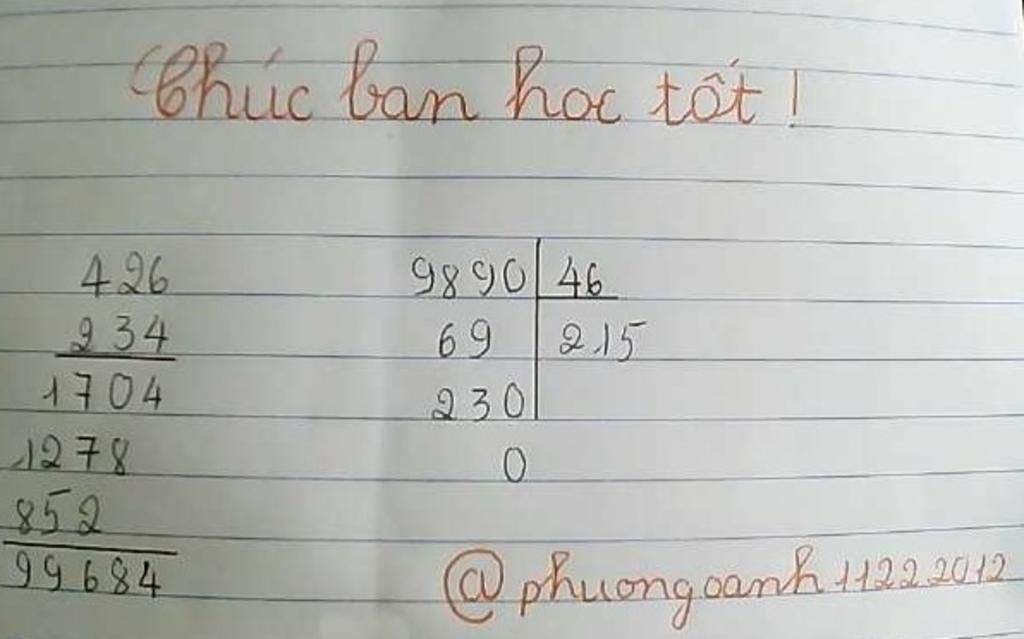 Chúc ban hoc tốt !
426
234
1704
1278
852
99684
9890 46
69 215
230
0
@phuongoanh11222012